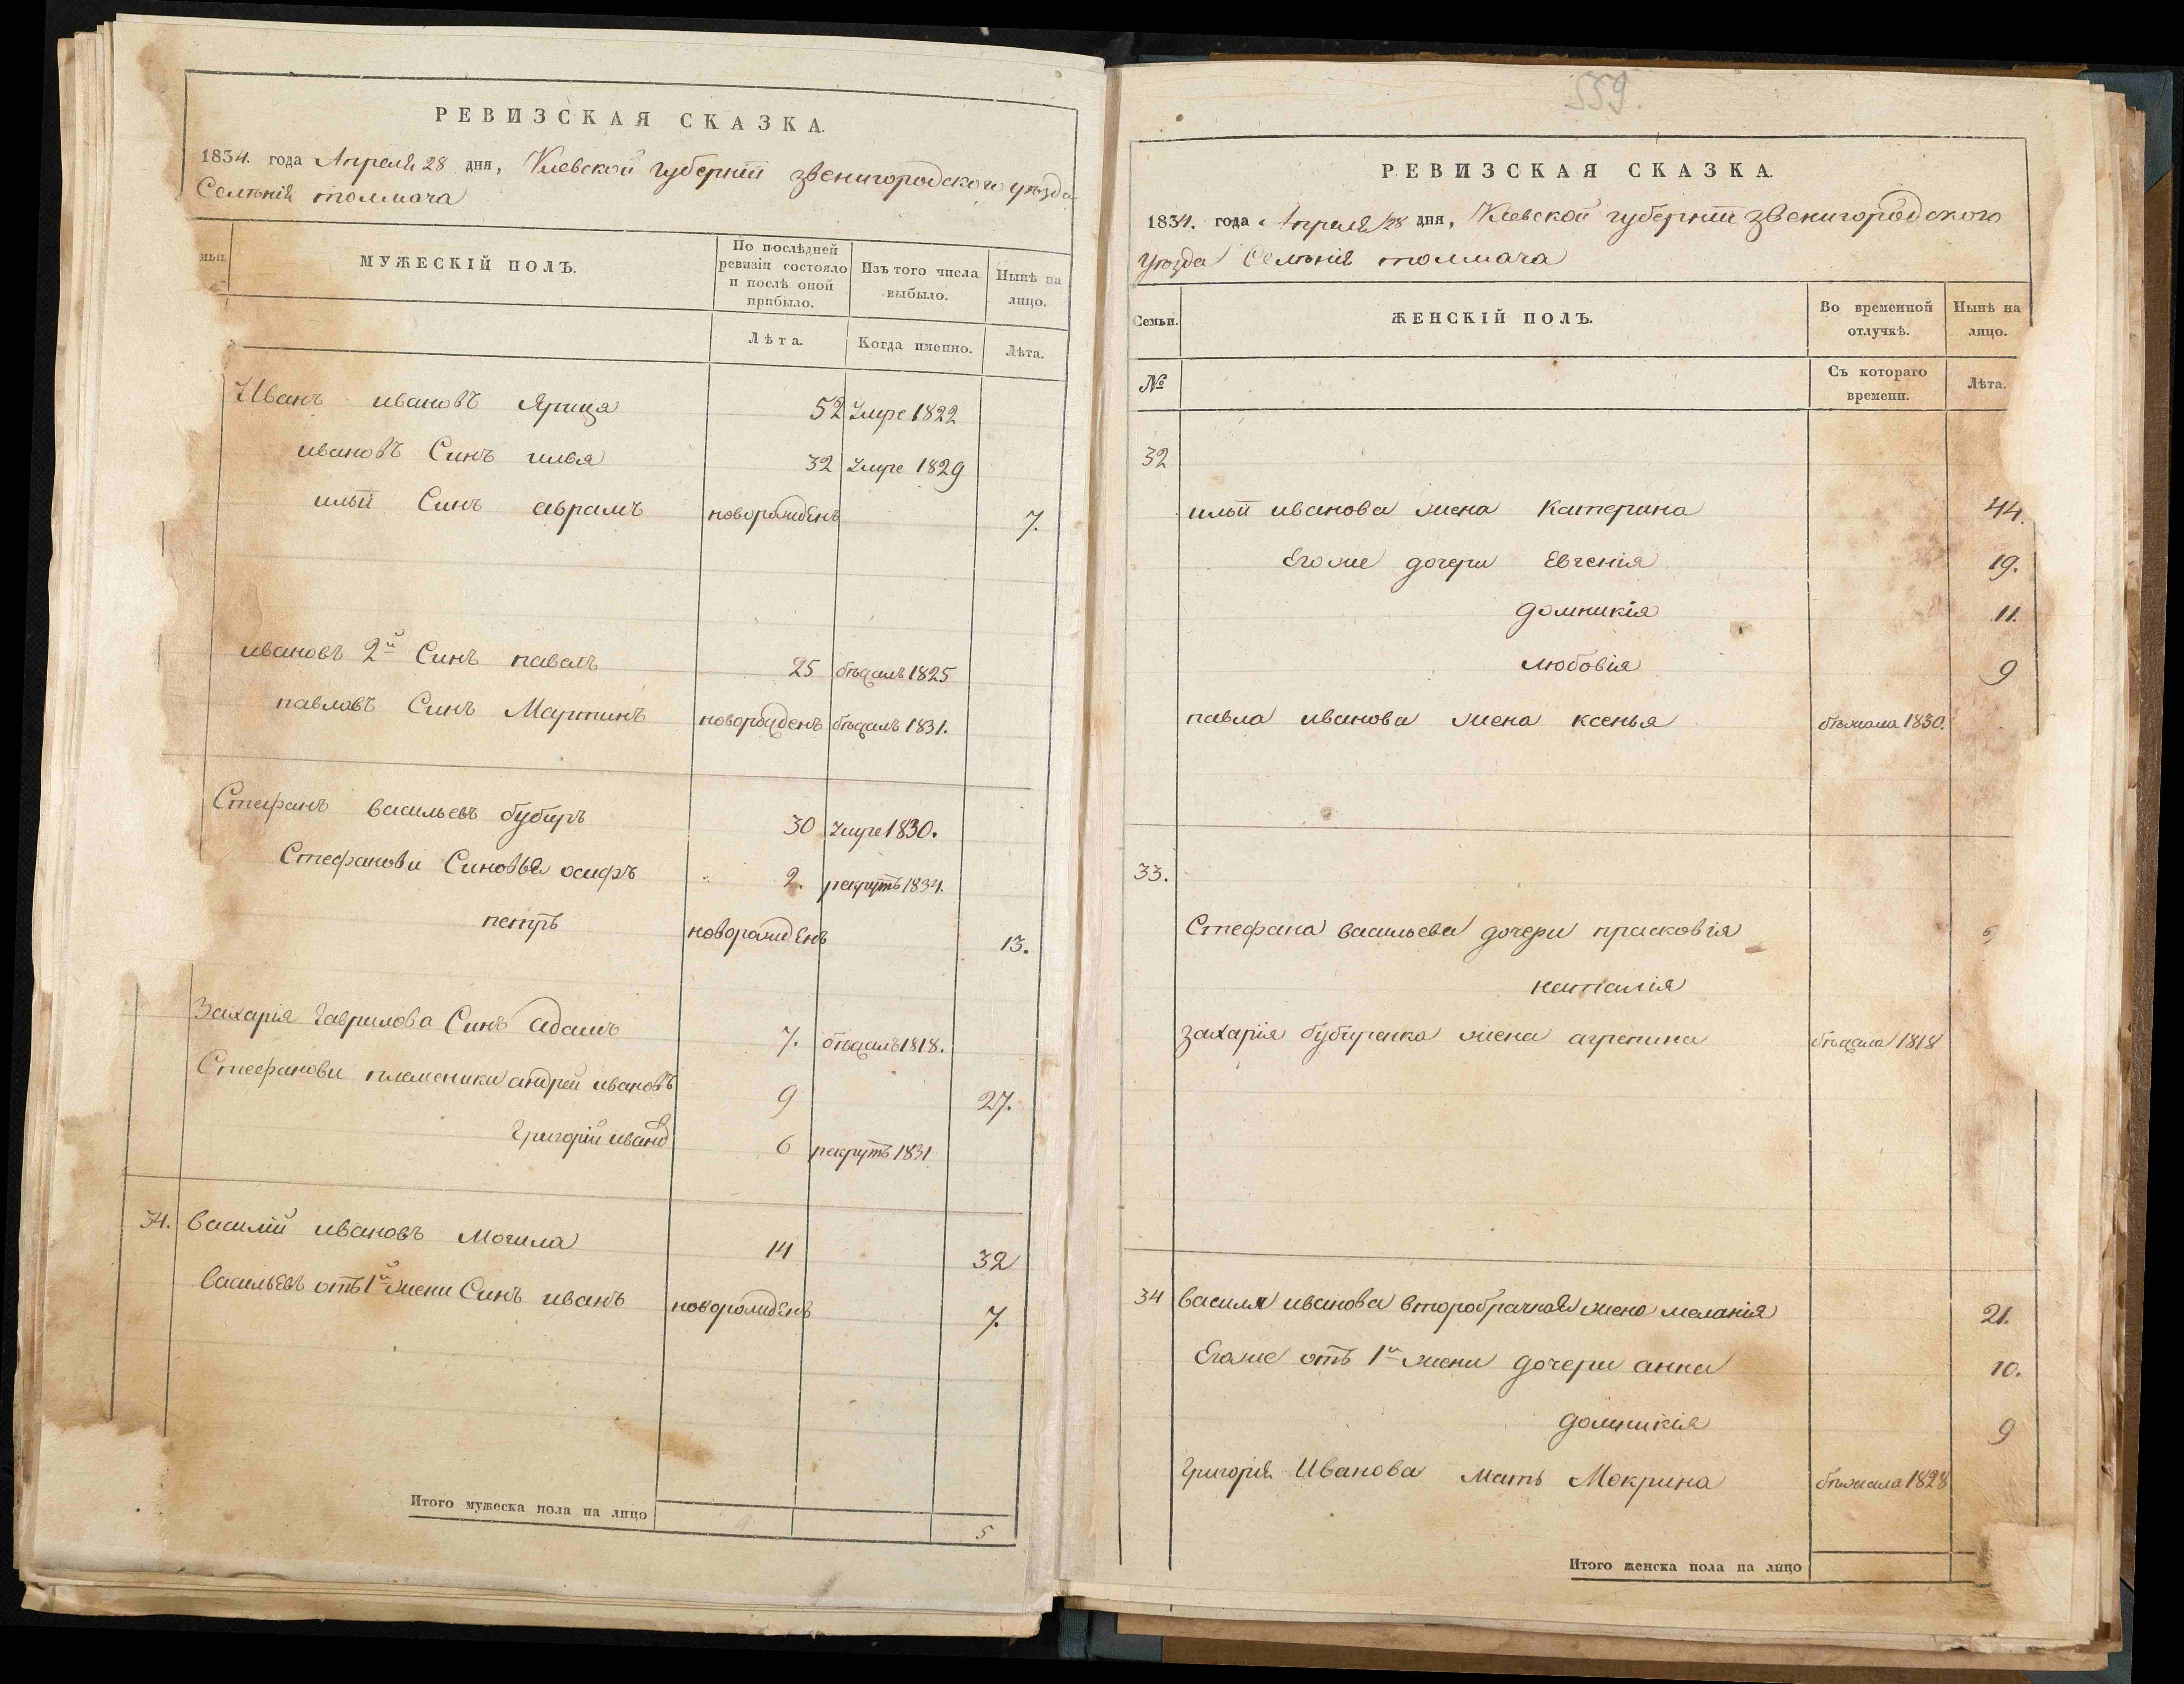 РЕВИЗСКАЯ СКАЗКА.
1834. года Апреля 28 дня, Киевской губернiи звенигородского уѣзда
Селѣнiя толмача
мьи.
МУЖЕСКIЙ ПОЛЪ.
По послѣдней ревизiи состояло и послѣ оной прибыло.
Изъ того числа выбыло.
Нынѣ на лицо.
Лѣта.
Когда именно.
Лѣта.
Иванъ ивановъ Ярица 52 Умре 1822
ивановъ Синъ илья 32 Умре 1829
ильи Синъ аврамъ новорожденъ 7.
ивановъ 2й Синъ павелъ 25 бѣжалъ 1825
павловъ Синъ Мартинъ новорожденъ бѣжалъ 1831.
Стефанъ васильевъ бубиръ 30 Умре 1830.
Стефанови Синовья осифъ 2. рекрутъ 1834.
петръ новорожденъ 13.
Захарiя Гаврилова Синъ адамъ 7. бѣжалъ 1818.
Стефанови племеники андрей ивановъ 9 27.
Григорiй иванов 6 рекрутъ 1831
34. Василiй ивановъ Могила 14 32
Васильевъ отъ 1й жени Синъ иванъ новорожденъ 7.
Итого мужеска пола на лицо 5
559.
РЕВИЗСКАЯ СКАЗКА.
1834. года Апреля 28 дня, Киевской губернiи звенигородского
уѣзда Селѣнiя толмача
Семьи.
ЖЕНСКIЙ ПОЛЪ.
Во временной отлучкѣ.
Нынѣ на лицо.
№
Съ котораго времени.
Лѣта.
32
ильи иванова жена Катерина 44.
Егоже дочери Евгенiя 19.
домникiя 11.
любовiя 9
павла иванова жена ксенья бѣжала 1830.
33.
Стефана васильева дочери прасковiя
наталiя
захарiя бубиренка жена агрепина бѣжала 1818
34 василя иванова второбрачная жена меланiя 21.
Егоже отъ 1й жени дочери анна 10.
домникiя 9
Григорiя Иванова мать Мокрина бѣжала 1828
Итого женска пола на лицо